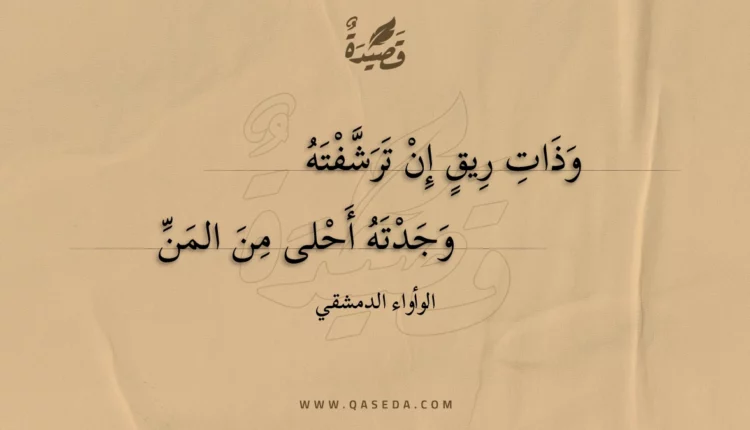 قَصِيدَةٌ
وَذَاتِ رِيقٍ إِنْ تَرَشَّفْتَهُ
وَجَدْتَهُ أَحْلى مِنَ المَنِّ
الوأواء الدمشقي
WWW.QASEDA.COM